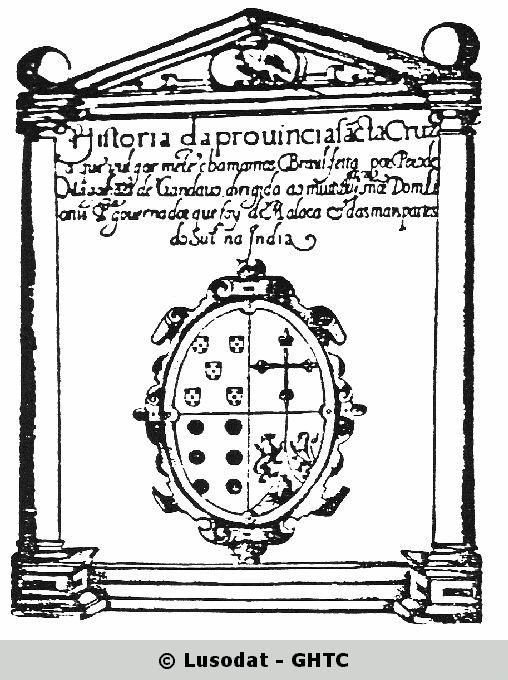 Historia da prouincia sãcta Cruz
a que vulgarmẽte chamamos Brasil feita por Pero de
Magalhães de Gandauo dirigida ao Dom
gouernador que foy de Malaca & das mais partes
do Sul na India
© Lusodat - GHTC